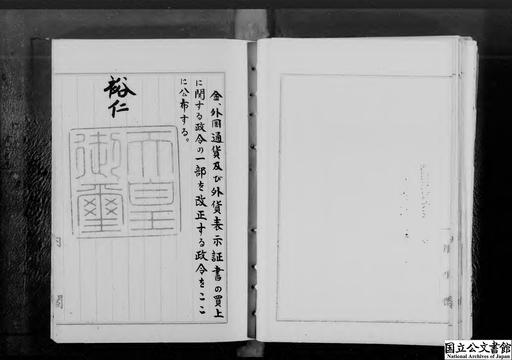 金、外国通貨及び外貨表示証書の買上
に関する政令の一部を改正する政令をここ
に公布する。
裕仁
天皇
御璽
国立公文書館
National Archives of Japan